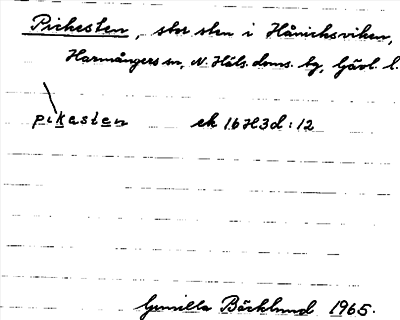 Pickesten, stor sten i Hånicksviken,
Harmångers sn, N. Häls. doms. bg, Gävl. l.
pikasten ek 16H3d:12
Gunilla Bäcklund 1965.